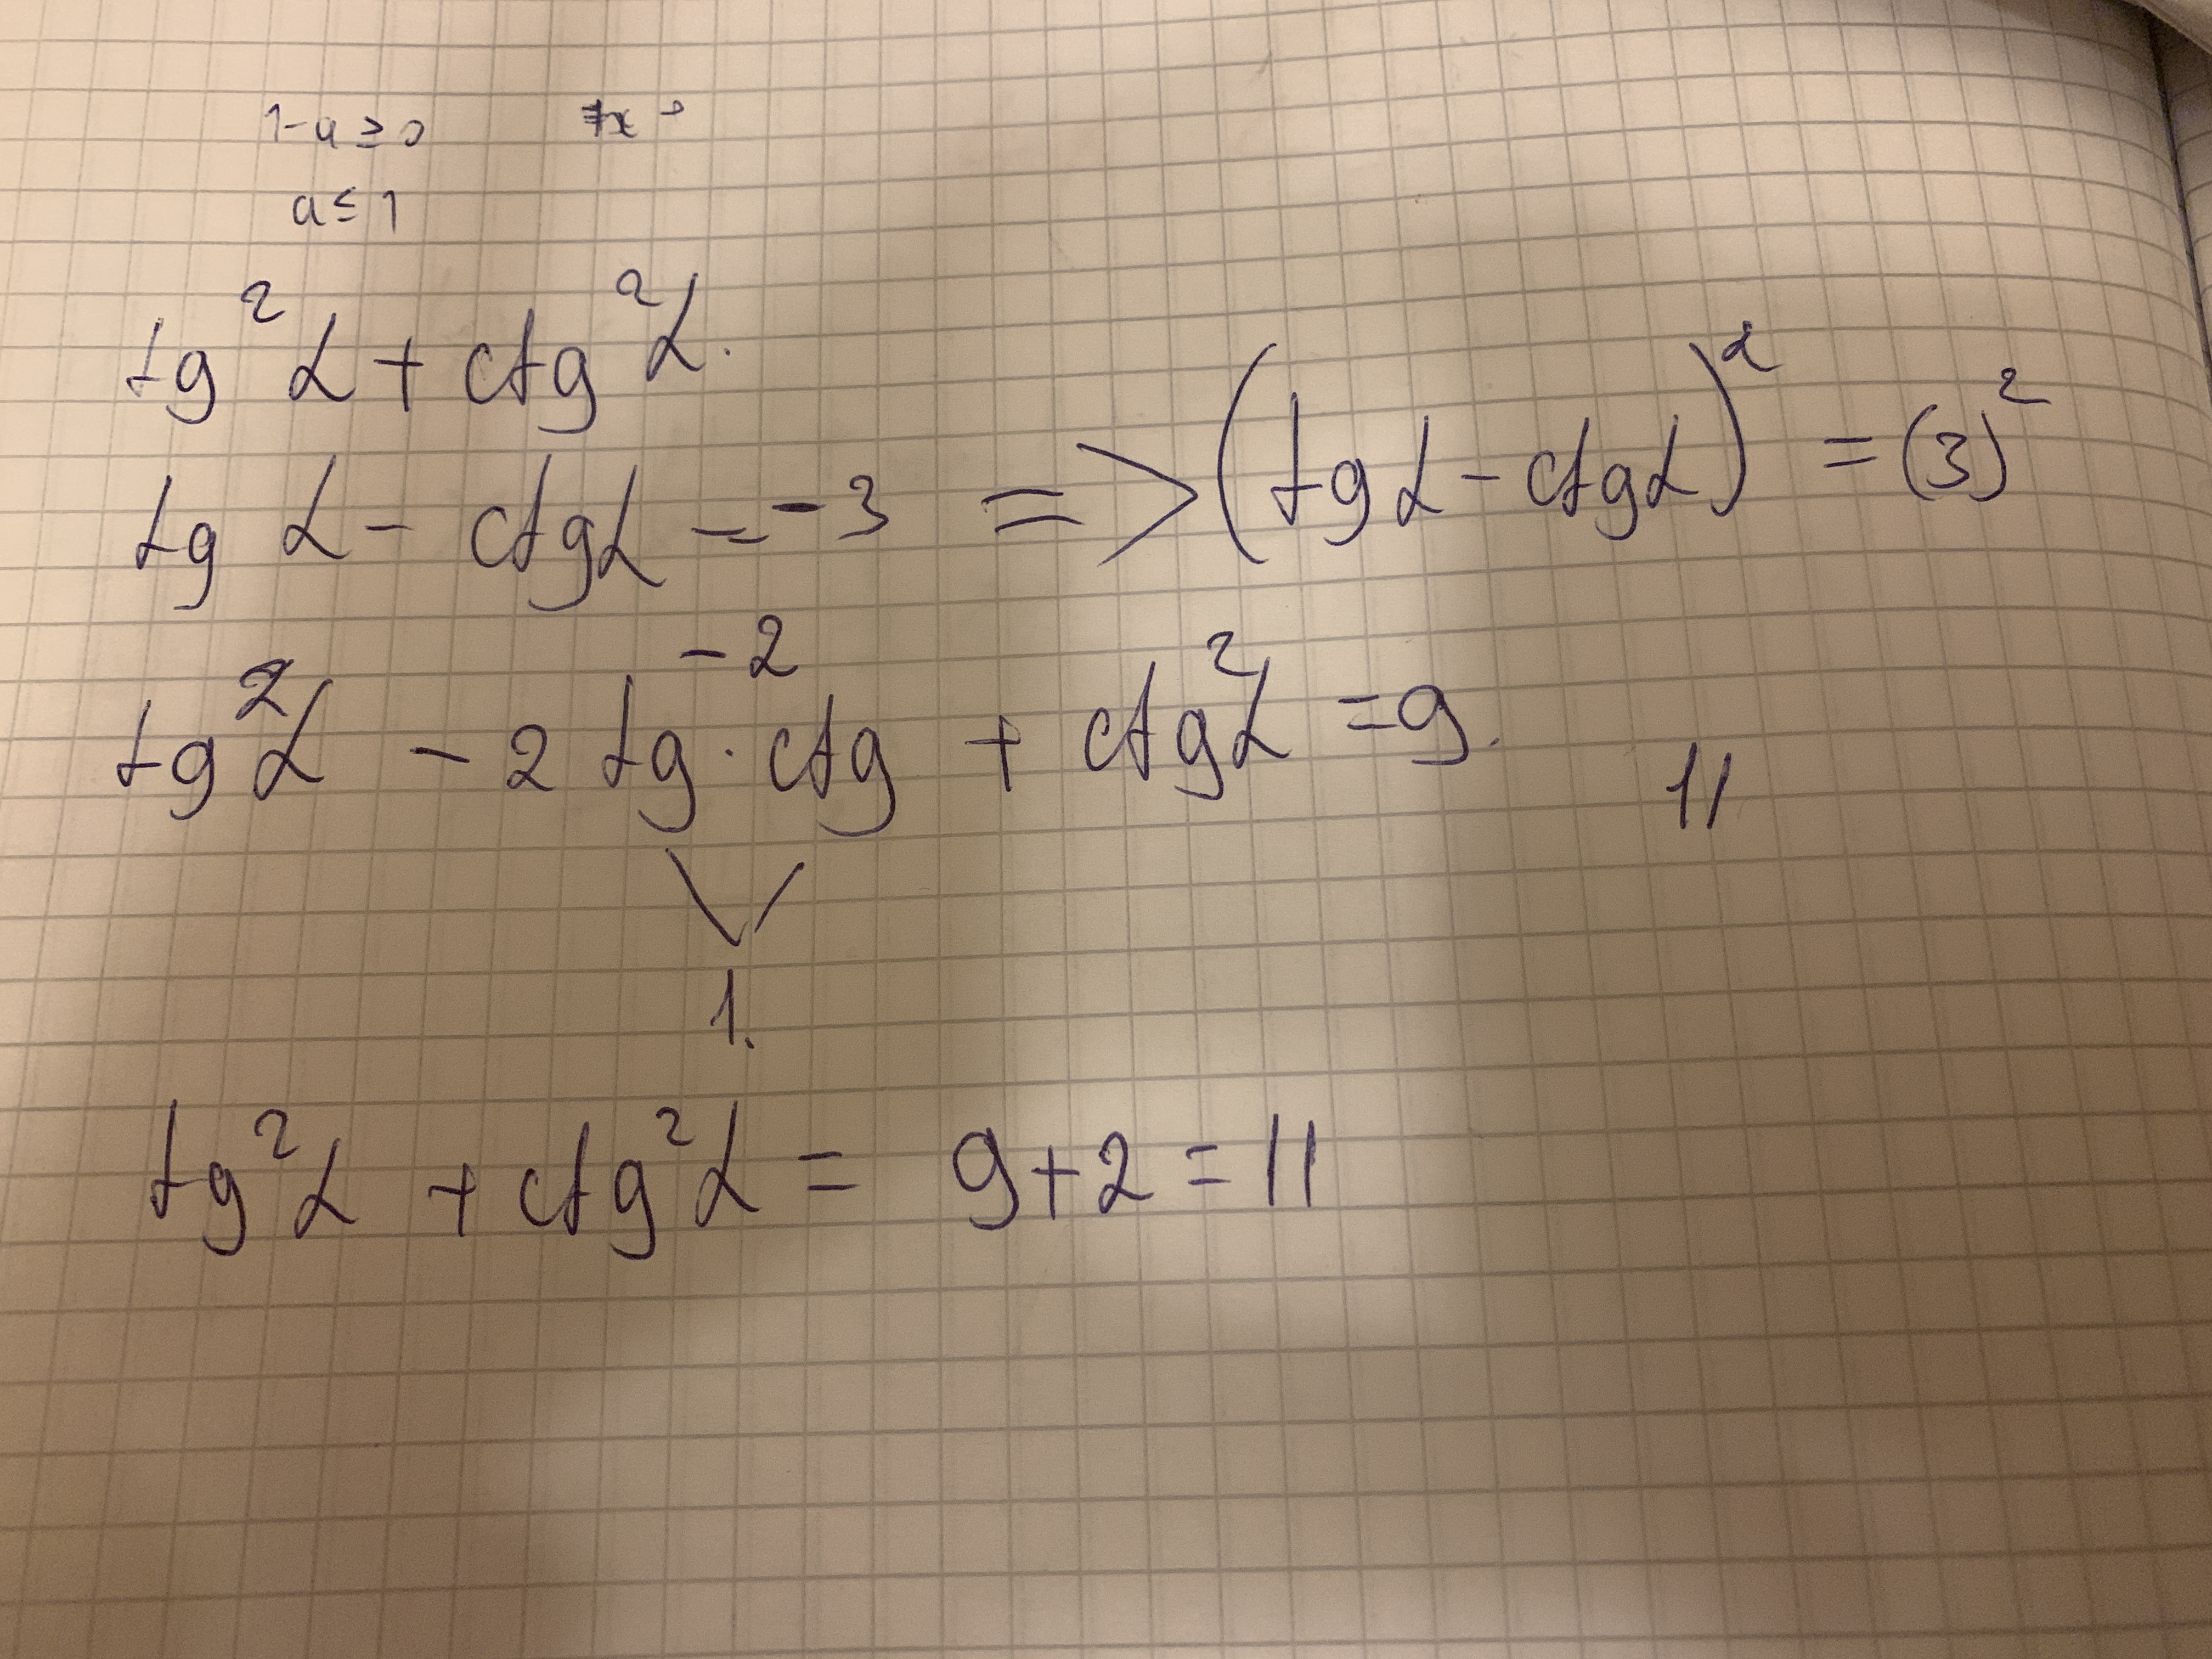 1-a ≥ 0
a ≤ 1
tg²α + ctg²α.
tg α - ctgα = -3 => (tgα - ctgα)² = (3)²
-2
tg²α - 2 tg · ctg + ctg²α = 9.
11
1.
tg²α + ctg²α = 9+2 = 11